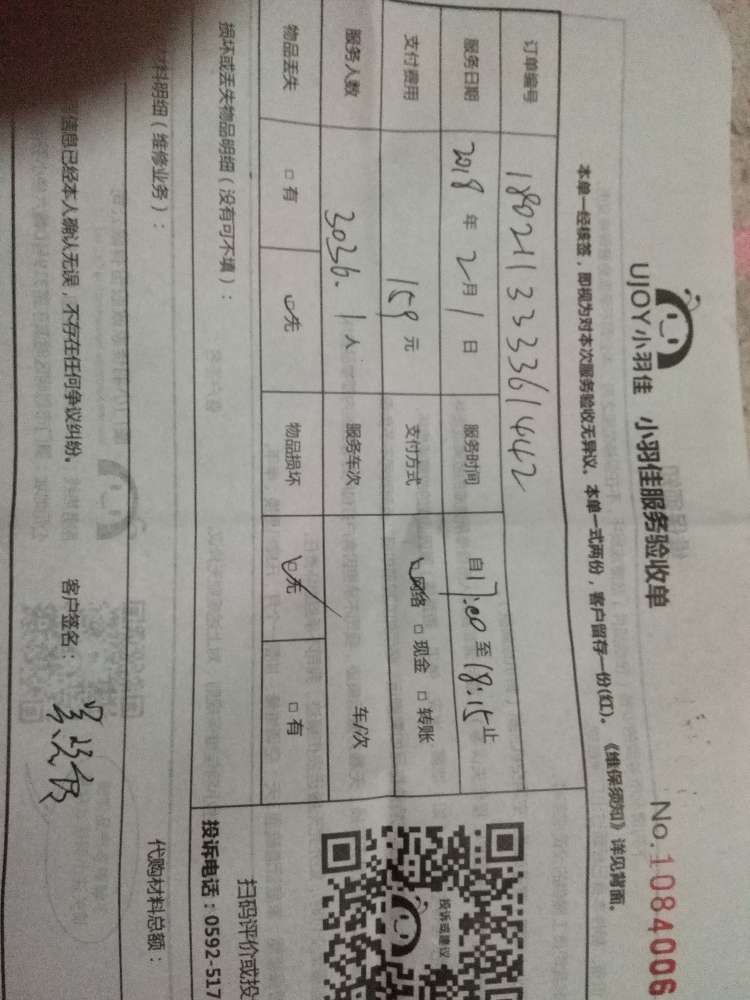 UJOY小羽佳 小羽佳服务验收单 No.1084006
本单一经核签，即视为对本次服务验收无异议。本单一式两份，客户留存一份(红)。《维保须知》详见背面。
订单编号 180211333361442
服务日期 2018年2月1日 服务时间 自17:00至18:15止
支付费用 159元 支付方式 ☑网络 □现金 □转账
服务人数 3036. 1人 服务车次 车/次
物品丢失 □有 ☑无 物品损坏 ☑无 □有
损坏或丢失物品明细（没有可不填）：
投诉或建议
扫码评价或投
投诉电话：0592-517
材料明细（维修业务）： 代购材料总额：
信息已经本人确认无误，不存在任何争议纠纷。 客户签名：